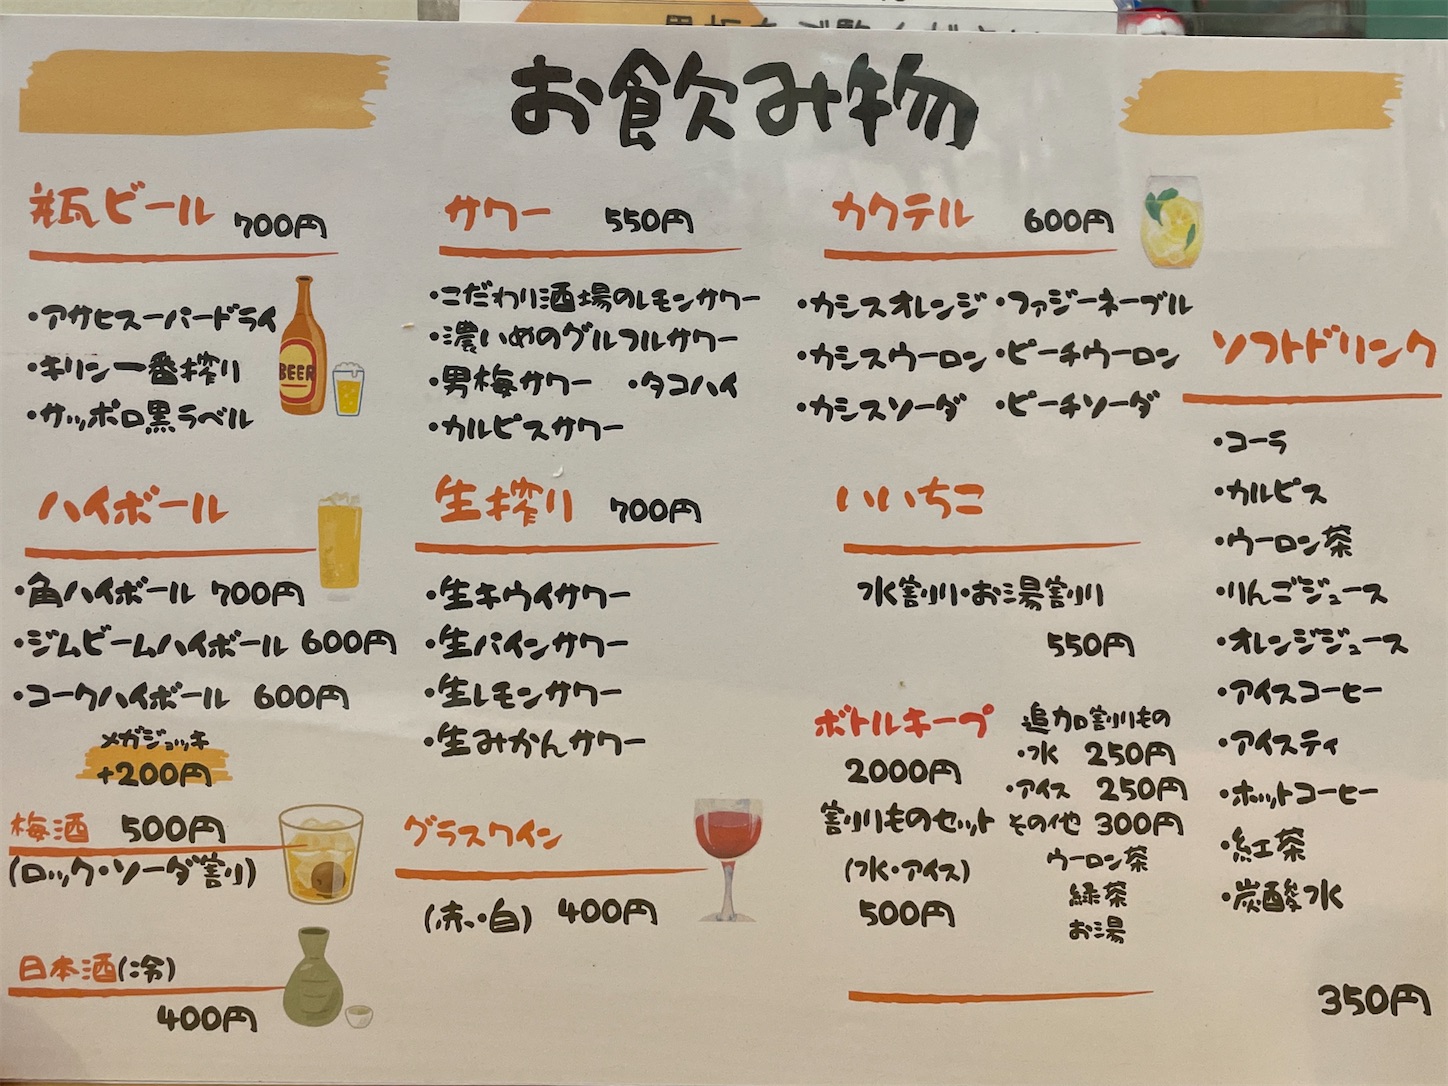 お飲み物
瓶ビール 700円
・アサヒスーパードライ
・キリン一番搾り
・サッポロ黒ラベル
BEER
ハイボール
・角ハイボール 700円
・ジムビームハイボール 600円
・コークハイボール 600円
メガジョッキ
+200円
梅酒 500円
(ロック・ソーダ割り)
日本酒(冷)
400円
サワー 550円
・こだわり酒場のレモンサワー
・濃いめのグルフルサワー
・男梅サワー ・タコハイ
・カルピスサワー
生搾り 700円
・生キウイサワー
・生パインサワー
・生レモンサワー
・生みかんサワー
グラスワイン
(赤・白) 400円
カクテル 600円
・カシスオレンジ・ファジーネーブル
・カシスウーロン・ピーチウーロン
・カシスソーダ ・ピーチソーダ
いいちこ
水割り・お湯割り
550円
ボトルキープ
2000円
割りものセット
(水・アイス)
500円
追加割りもの
・水 250円
・アイス 250円
その他 300円
ウーロン茶
緑茶
お湯
ソフトドリンク
・コーラ
・カルピス
・ウーロン茶
・りんごジュース
・オレンジジュース
・アイスコーヒー
・アイスティ
・ホットコーヒー
・紅茶
・炭酸水
350円